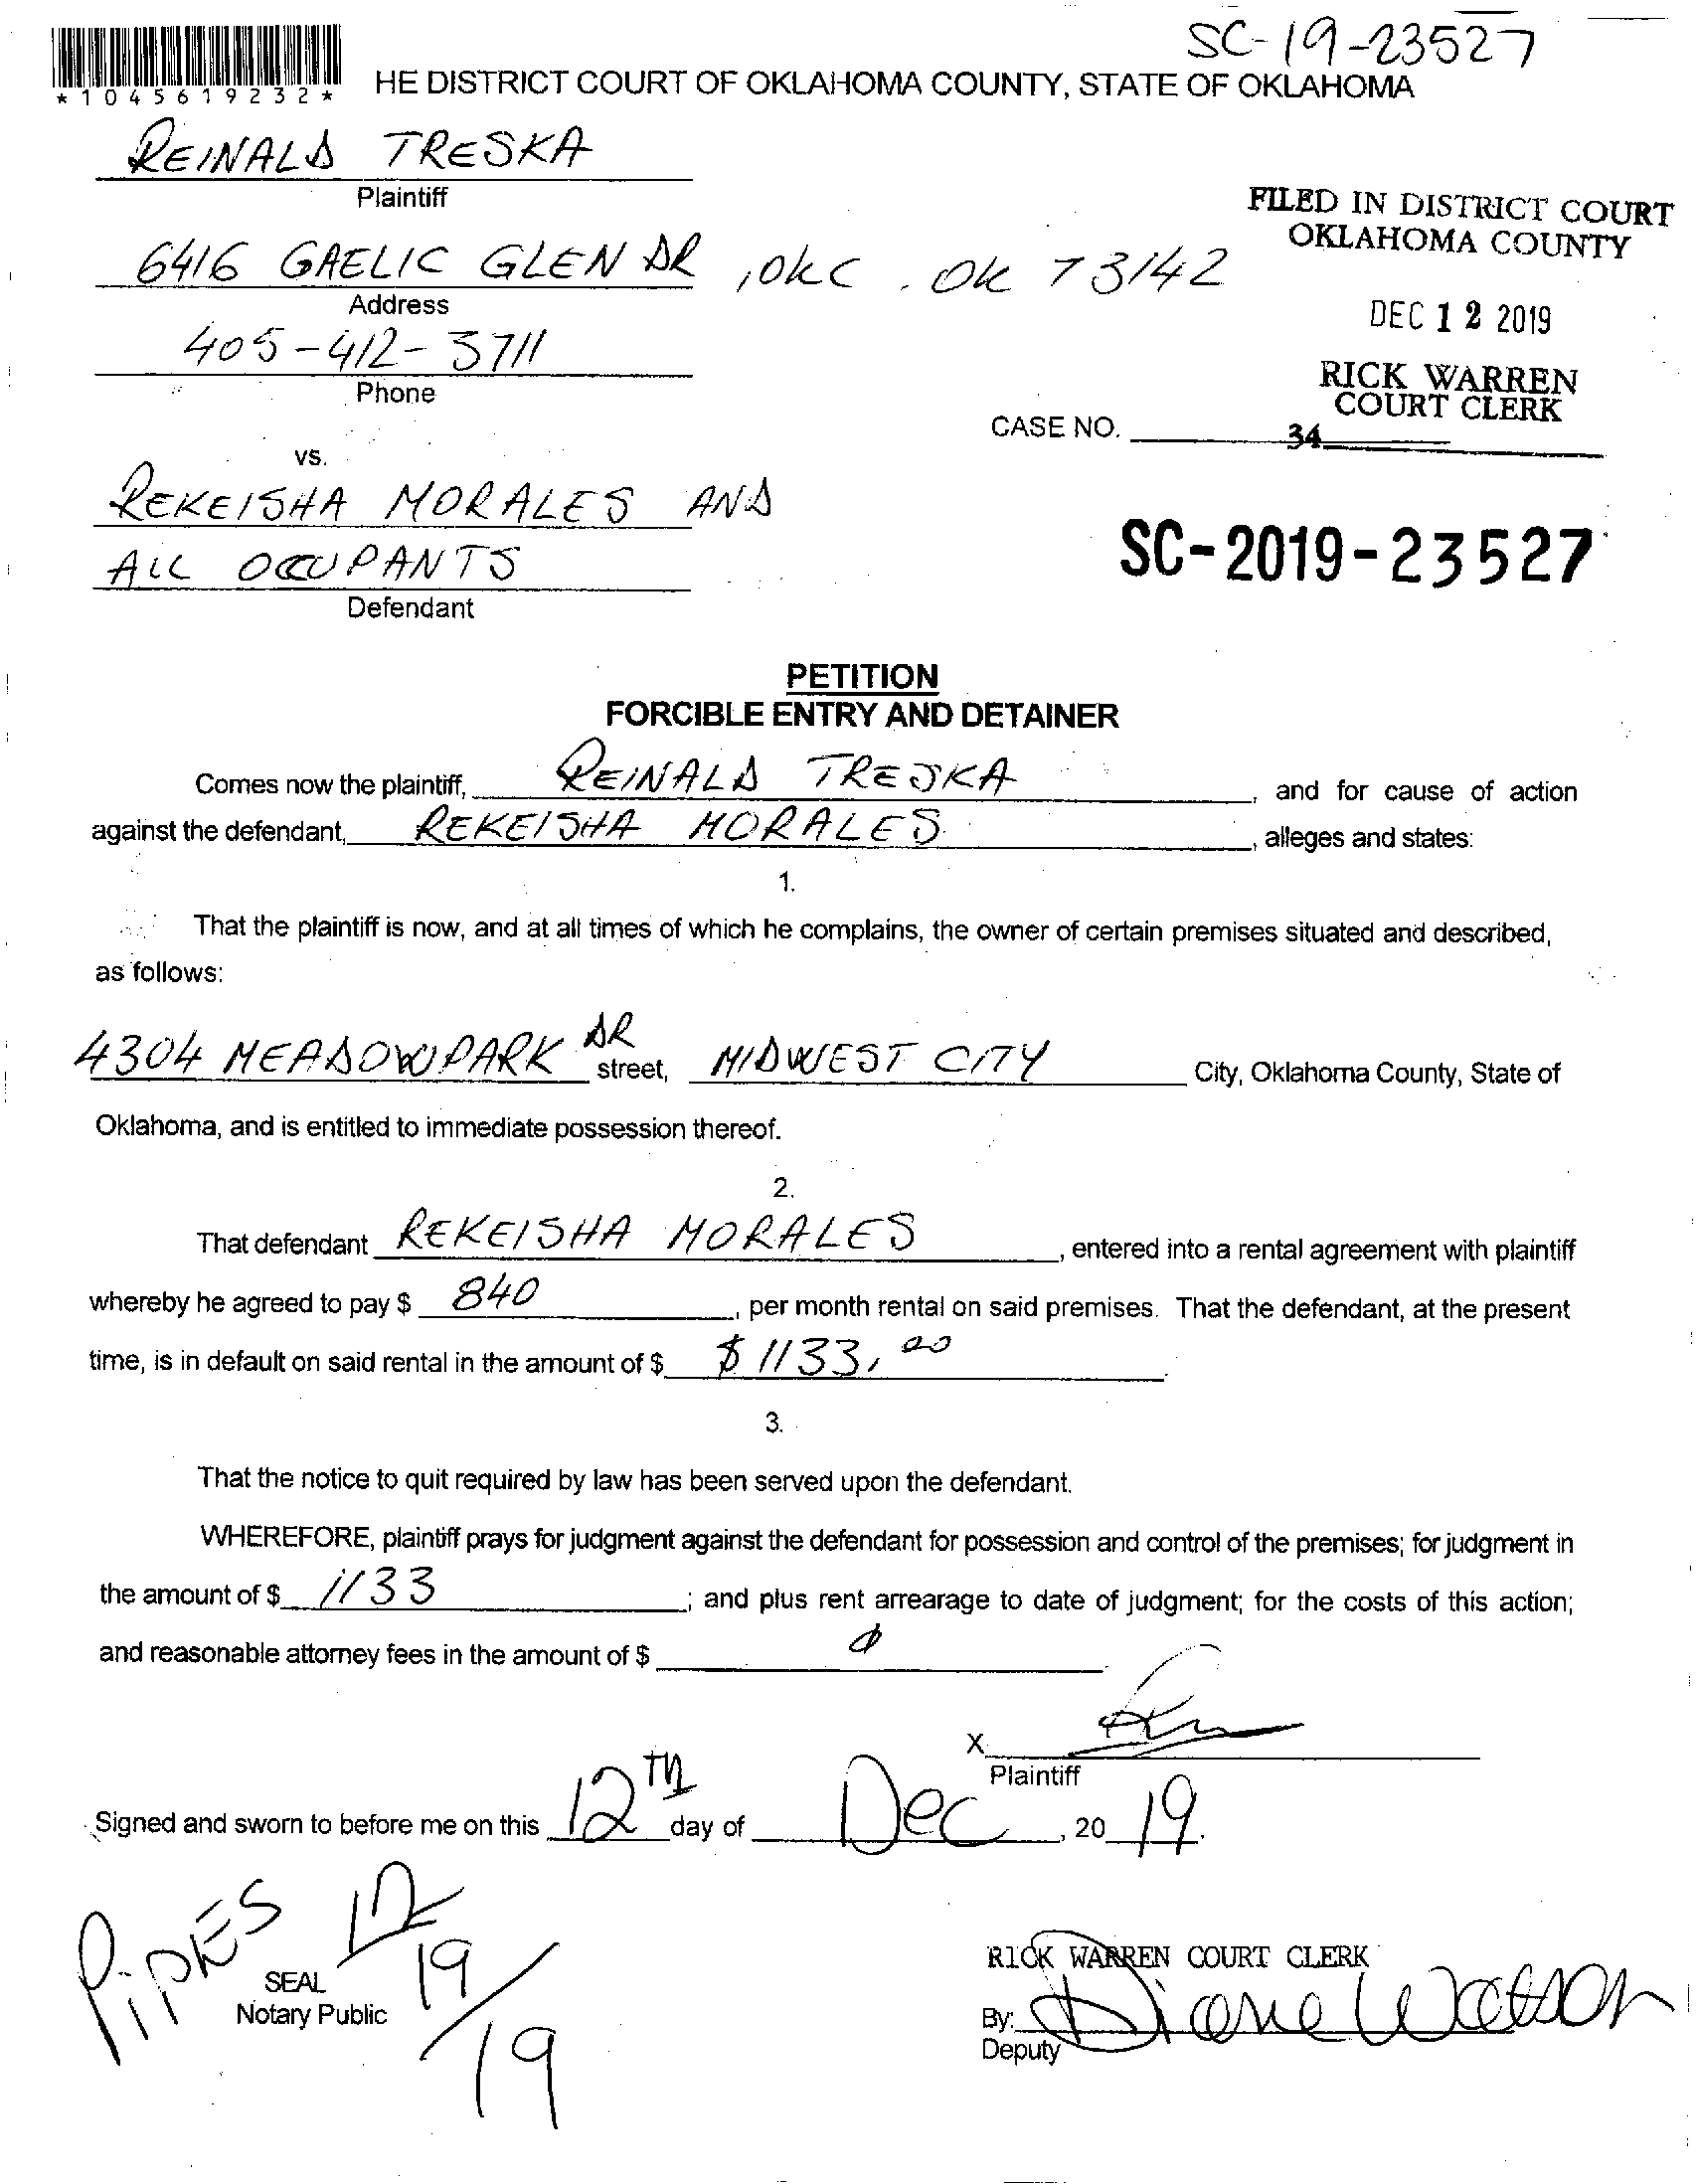 SC-19-23527
*1045619232*
HE DISTRICT COURT OF OKLAHOMA COUNTY, STATE OF OKLAHOMA
REINALD TRESKA
Plaintiff
FILED IN DISTRICT COURT
OKLAHOMA COUNTY
6416 GAELIC GLEN DR, OKC. OK 73142
Address
DEC 12 2019
405-412-3711
Phone
RICK WARREN
COURT CLERK
CASE NO.
34
vs.
REKEISHA MORALES AND
ALL OCCUPANTS
Defendant
SC-2019-23527
PETITION
FORCIBLE ENTRY AND DETAINER
Comes now the plaintiff, REINALD TRESKA, and for cause of action
against the defendant, REKEISHA MORALES, alleges and states:
1.
That the plaintiff is now, and at all times of which he complains, the owner of certain premises situated and described,
as follows:
4304 MEADOWPARK DR street, MIDWEST CITY City, Oklahoma County, State of
Oklahoma, and is entitled to immediate possession thereof.
2.
That defendant REKEISHA MORALES, entered into a rental agreement with plaintiff
whereby he agreed to pay $ 840, per month rental on said premises. That the defendant, at the present
time, is in default on said rental in the amount of $ $1133,00
3.
That the notice to quit required by law has been served upon the defendant.
WHEREFORE, plaintiff prays for judgment against the defendant for possession and control of the premises; for judgment in
the amount of $ 1133; and plus rent arrearage to date of judgment; for the costs of this action;
and reasonable attorney fees in the amount of $ 0
X
Plaintiff
Signed and sworn to before me on this 12TH day of Dec, 20 19.
PIPKES 12/19/19
SEAL
Notary Public
RICK WARREN COURT CLERK
By: Diane Watson
Deputy